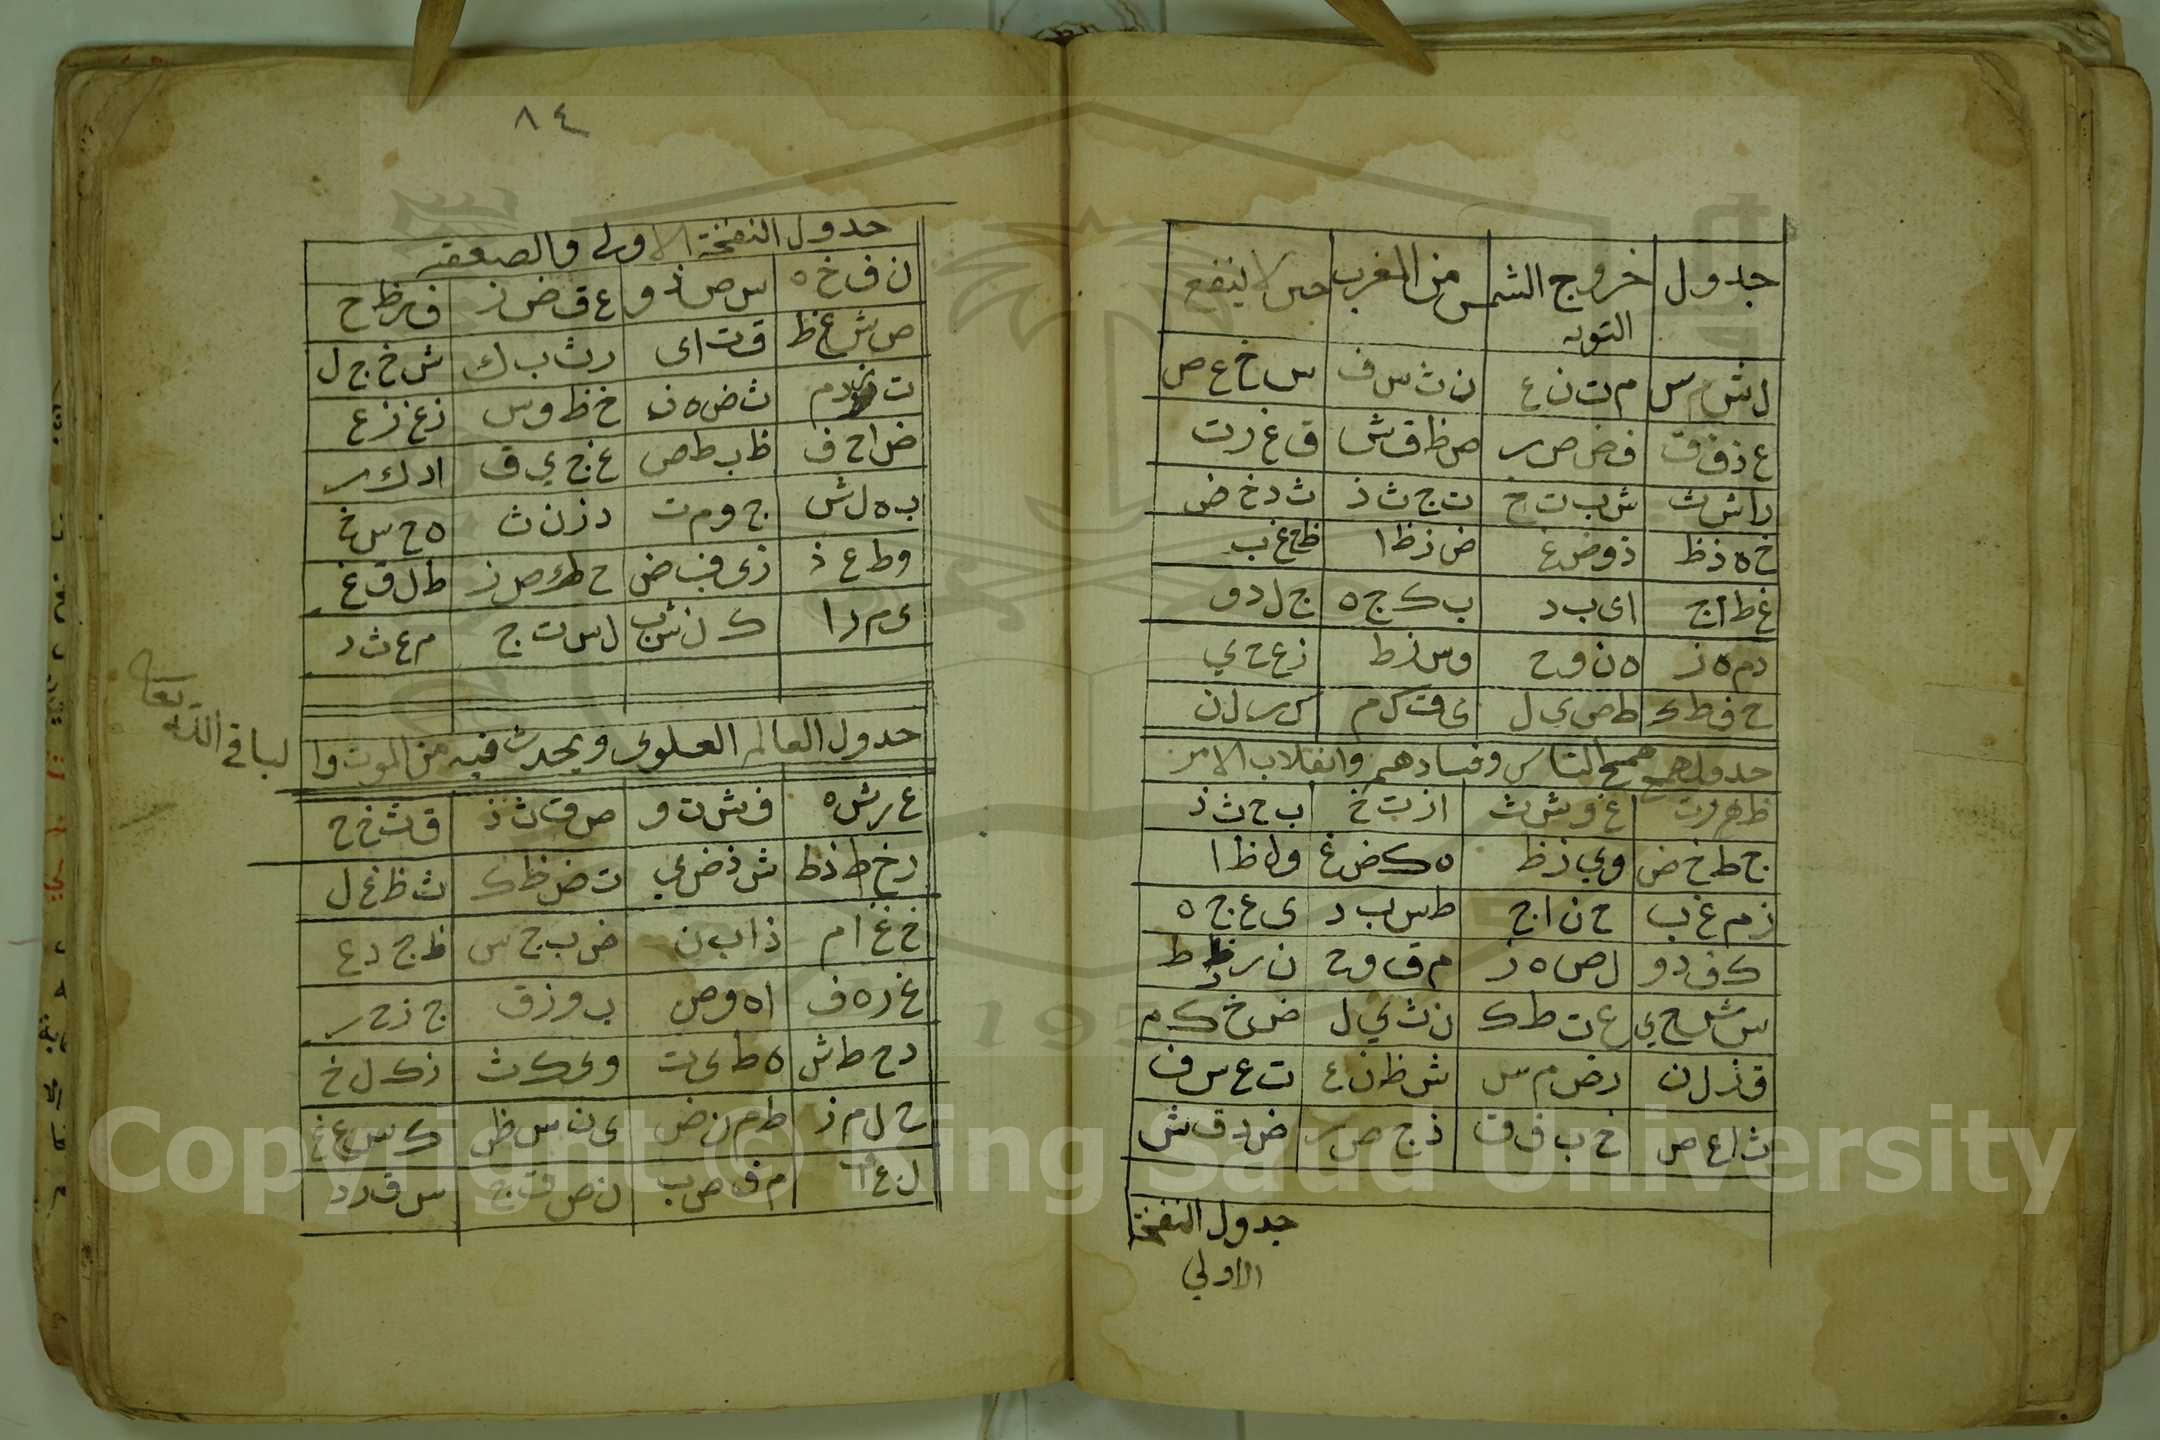 جدول خروج الشمس من المغرب حين لا ينفع
التوبه
ل ش م س م ت ن ع ن ث س ف س خ ع ص
ع ذ ف ق ف ض ص ر ص ظ ق ش ق غ ر ت
ر ا ش ث ش ب ت خ ت ج ث ذ ث د خ ض
خ ه ذ ظ ذ و ض غ ض ز ظ ا ظ ح غ ب
غ ط ا ج ا ى ب د ب ك ج ه ج ل د و
د م ه ز ه ن و ح و س ز ط ز ع ح ي
ح ف ط ك ط ص ي ل ى ق ك م ك ر ل ن
جدول جميع الناس وفسادهم وانقلاب الامر
ظ ه ر ت غ و ش ث ا ز ت خ ب ح ث ذ
ج ط خ ض و ي ذ ظ ه ك ض غ و ل ظ ا
ز م غ ب ح ن ا ج ط س ب د ى ع ج ه
ك ف د و ل ص ه ز م ق و ح ن ر ز ط
س ش ح ي ع ت ط ك ن ث ي ل ض خ ك م
ق ذ ل ن ر ض م س ش ظ ن ع ت غ س ف
ث ا ع ص خ ب ف ق ذ ج ص ر ض د ق ش
جدول النفخة
الاولي
٨٤
جدول النفخة الاولى والصعقه
ن ف خ ه س ص ذ و ع ق ض ز ف ر ظ ح
ص ش غ ظ ق ت ا ى ر ث ب ك ش خ ج ل
ت ذ د م ث ض ه ن خ ظ و س ذ غ ز ع
ض ا ح ف ظ ب ط ص غ ج ي ق ا د ك ر
ب ه ل ش ج و م ت د ز ن ث ه ح س خ
و ط ع ذ ز ى ف ض ح ك ص ز ط ل ق غ
ى م ر ا ك ن ش ب ل س ت ج م ع ث د
جدول العالم العلوى ويحدث فيه من الموت وا لباقي الله تعالى
ع ر ش ه ف ش ت و ص ق ث ذ ق ث خ ح
ر خ ط ذ ظ ش ذ ض ي ت ض ظ ك ث ظ غ ل
خ غ ا م ذ ا ب ن ض ب ج س ظ ج د ع
غ د ه ف ا ه و ص ب و ز ق ج ز ح ر
د ح ط ش ه ط ى ت و ى ك ث ز ك ل خ
ح ل م ذ ط م ن ض ى ن س ظ ك س ع غ
ل ع ا م ف ص ب ن ص ق ج س ق ر د
Copyright © King Saud University